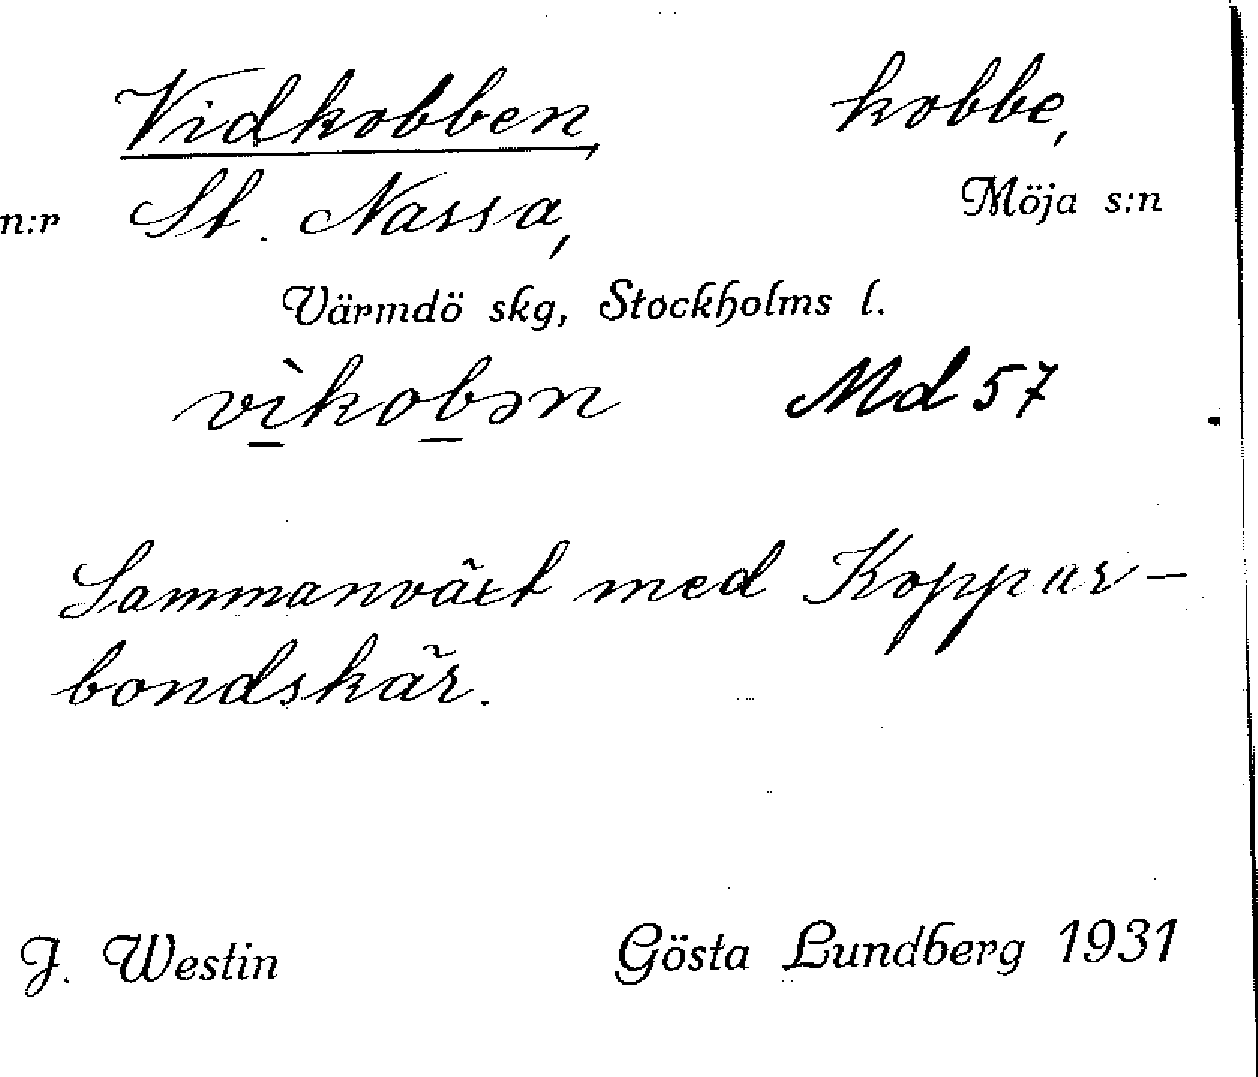 Vidkobben, kobbe,
n:r St. Nassa, Möja s:n
Värmdö skg, Stockholms l.
vìkobən Md 57
Sammanväxt med Koppar-
bondskär.
J. Westin Gösta Lundberg 1931